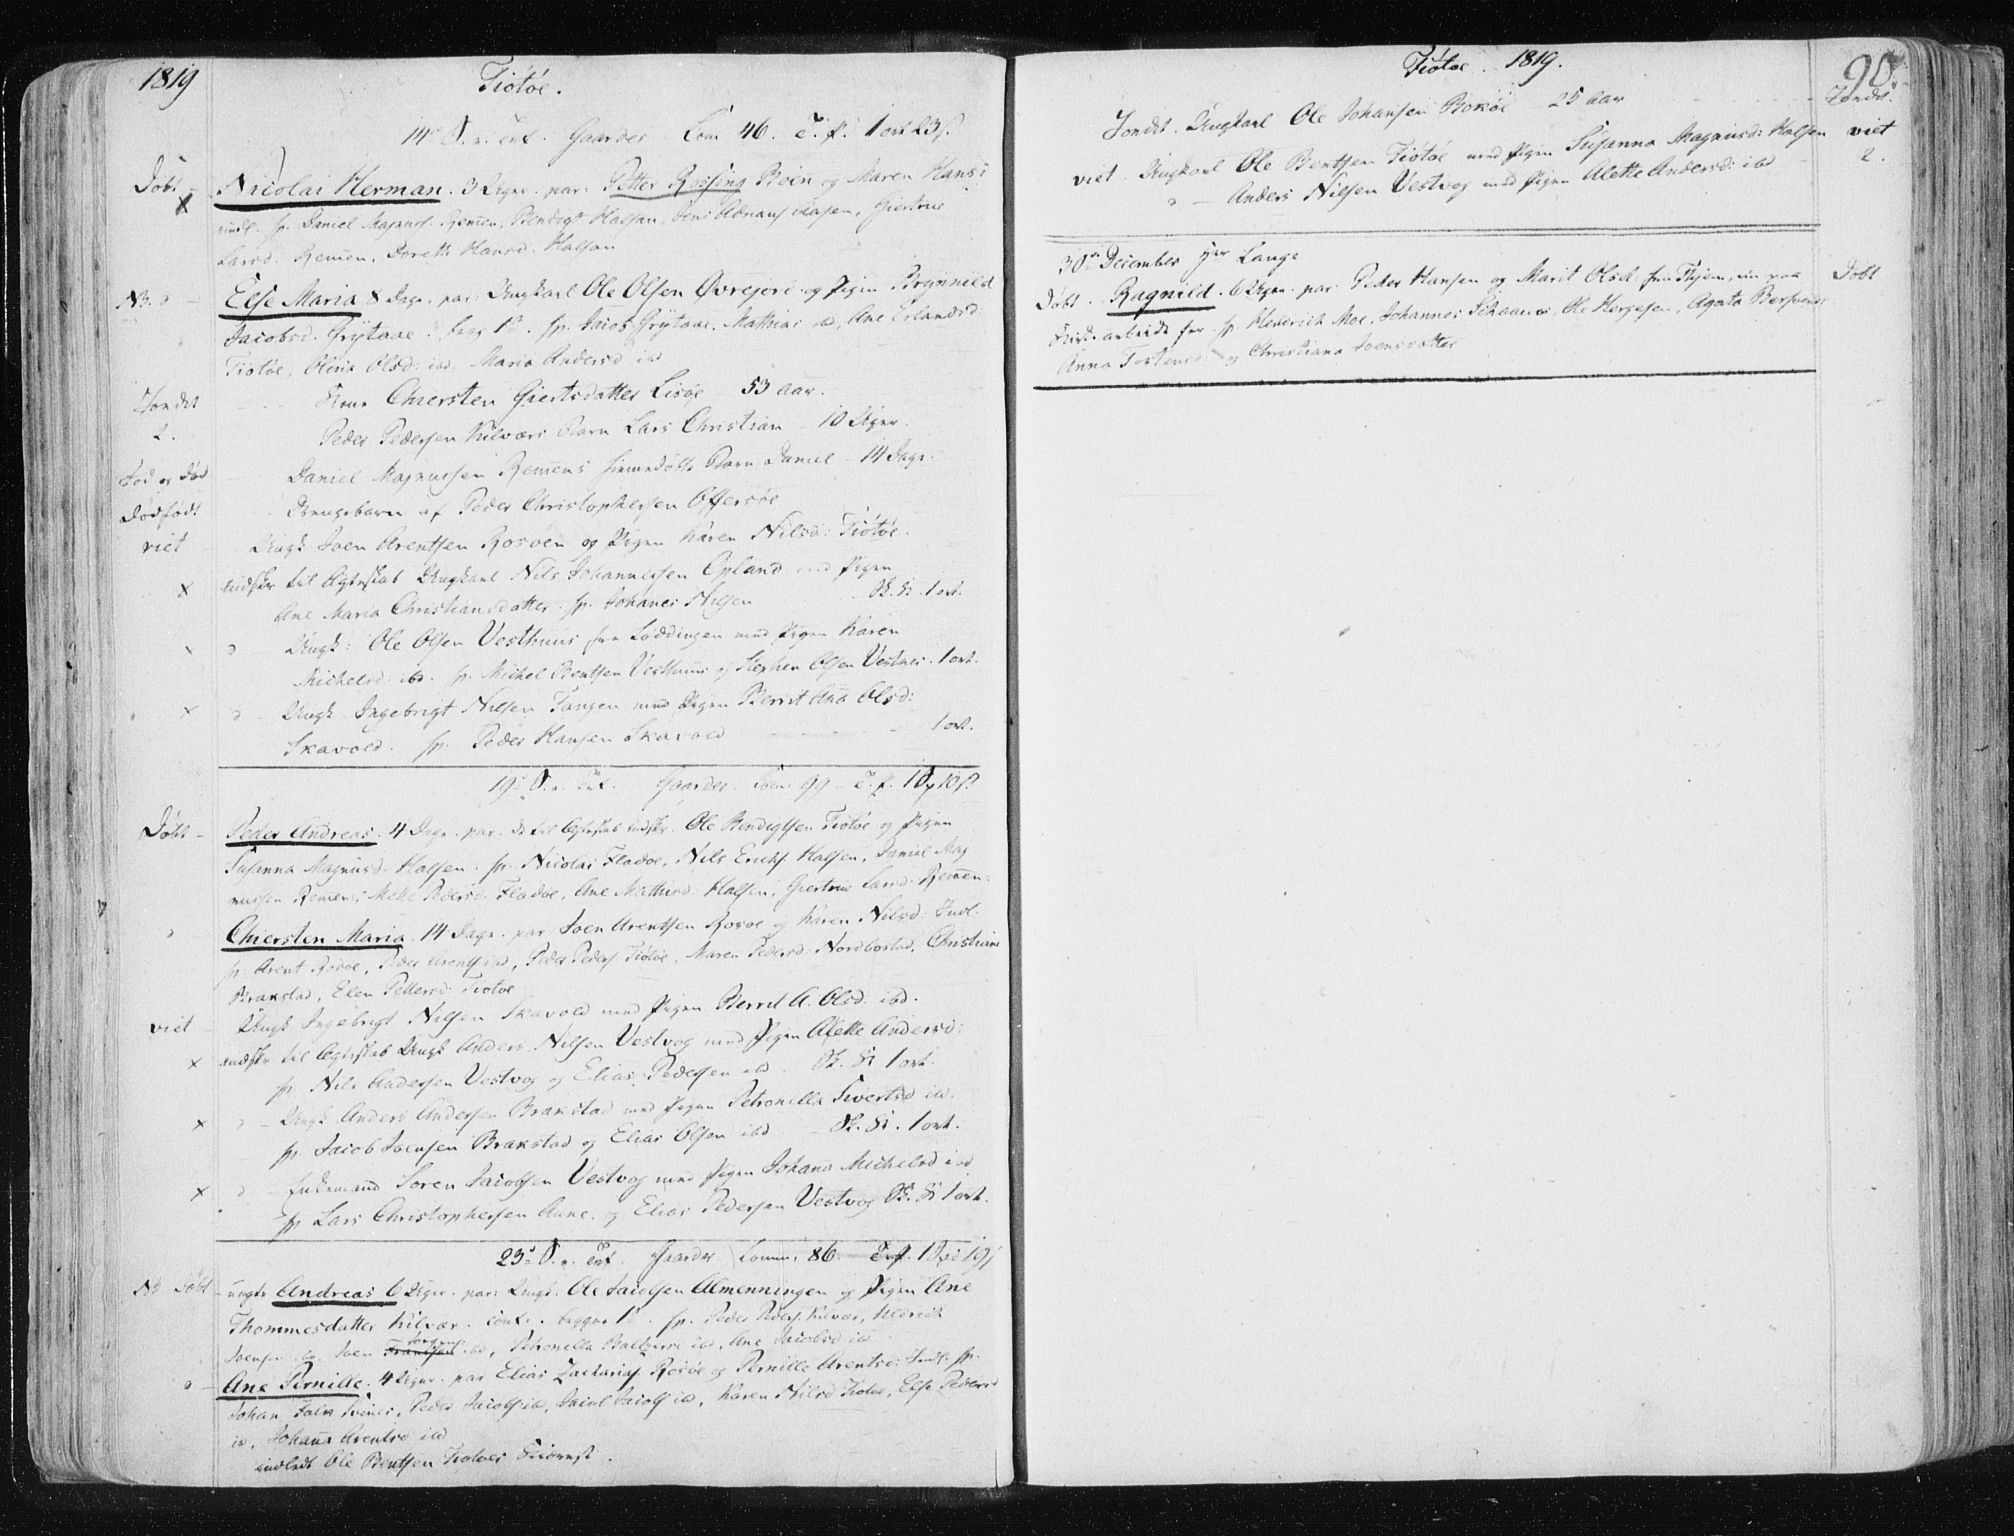 1819 Tiötöe.
14de S. n. Trf. Gaarder Com 46. T. f. 1 ort 23 s.
Döbt – Nicolai Herman. 3 Uger. par. Petter Rossing Boen og Maren Hans
sp. Daniel Magnus. Remen, Bendigt Halsen, Giertrue
Larsd. Remen, Doreth Hansd. Halsen
Else Maria 8 Dage. par. Ungkarl Ole Olsen Övrejord og Pigen Brynnild
Jacobsd. Grytaae. begge 1te. sp. Jacob Grytaae, Mathias ibd, Ane Erlandsd.
Tiötöe, Olina Olsd. ibd. Maria Andersd ibd
Jordet Kone Chiersten Giertsdatter Lisöe – 53 aar.
2. Peder Pedersen Kilværs Barn Lars Christian – 10 Uger.
Fod og död Daniel Magnussen Remens hiemedöbte Barn Daniel – 14 Dage.
Dödfödt Drengebarn af Peder Christophersen Offersöe
viet Ungk Joen Arentsen Rosöen og Pigen Karen Nilsd: Tiötöe.
x indskr til Ægteskab Ungkarl Nils Johannessen Opland med Pigen
Ane Maria Christiansdatter. sp. Johanes Nilsen Sk. Si. 1 ort.
x d – Ungk: Ole Olsen Vesthuus fra Löddingen med Pigen Karen
Michelsd: ibd. sp. Michel Bentsen Vesthuus og Stephen Olsen Vestnes. 1 ort.
x d – Ungk. Ingebrigt Nilsen Tangen med Pigen Berrit Ana Olsd:
Skavold. sp. Peder Hansen Skavold – 1 ort.
19de S. n. Trf. Gaarder. Com: 99 – T. f. 1 10 s
Döbt – Peder Andreas. 4 Dage. par. de til Ægteskab indskr. Ole Bendigtsen Tiötöe og Pigen
Susanna Magnusd. Halsen. sp. Nicolai Fladöe, Nils Erichs. Halsen, Daniel Mag
nussen Remen, Mette Pedersd. Fladöe, Ane Mathisd: Halsen, Giertrue Larsd. Remen.
Chiersten Maria. 14 Dage. par Joen Arentsen Rosöe og Karen Nilsd:
sp. Arent Rosöe, Peder Arents ibd, Peder Peders Tiötöe, Maren Pedersd. Nordbostad, Christiane
Brakstad, Elen Pettersd: Tiötöe
viet – Ungk Ingebrigt Nilsen Skavold med Pigen Berrit A. Olsd. ibd.
x indskr til Ægteskab Ungk Anders Nilsen Vestvog med Pigen Alette Andersd:
sp. Nils Andersen Vestvog og Elias Pedersen ibd. Sk. Si 1 ort.
x d – Ungk Anders Andersen Brakstad med Pigen Petronella Sivertsd ibd.
sp. Jacob Joensen Brakstad og Elias Olsen ibd – Sk. Si. 1 ort.
x d – Enkemand Sören Jacobsen Vestvog med Pigen Johana Michelsd ibd
sp Lars Christophersen Aune. og Elias Pedersen Vestvog Sk. Si 1 ort.
23de S. n. Trf. Gaarder Comm: 86. T. f. 1
döbt – uægte Andreas 6 Uger. par: Ungk. Ole Jacobsen Almenningen og Pigen Ane
Thommesdatter Kilvær. begges 1te. sp. Peder Peders. Kilvær, Hedrich
Joensen ibd, Joen ibd, Petronella Baltzersd ibd, Ane Jacobsd ibd
d – Ane Pernille. 4 Uger. par Elias Zacharias. Rosöe og Pernille Arentsd: Indl: sp.
Johan Falk, Peder Jacobs ibd, Jacob Jacobs ibd, Karen Nilsd Tiötöe, Else Pedersd
ib, Johana Arentsd ibd
indledt Ole Bentsen Tiötöes

Tiötöe. 1819. 90
Jordet. Ungkarl Ole Johansen Rosöe – 25 aar Jordet.
viet. Ungkarl Ole Bentsen Tiötöe med Pigen Susanna Magnusd: Halsen viet
d – Anders Nilsen Vestvog med Pigen Alette Andersd: ibd 2.
30te December Hr Lange
Döbt. Ragnild. 6 Uger. par. Peder Hansen og Marit Olsd. fra paa Döbt
sp. Hendrich Moe, Johannes, Ole Hergesen, Agata
Anna og Christiana Joensdatter